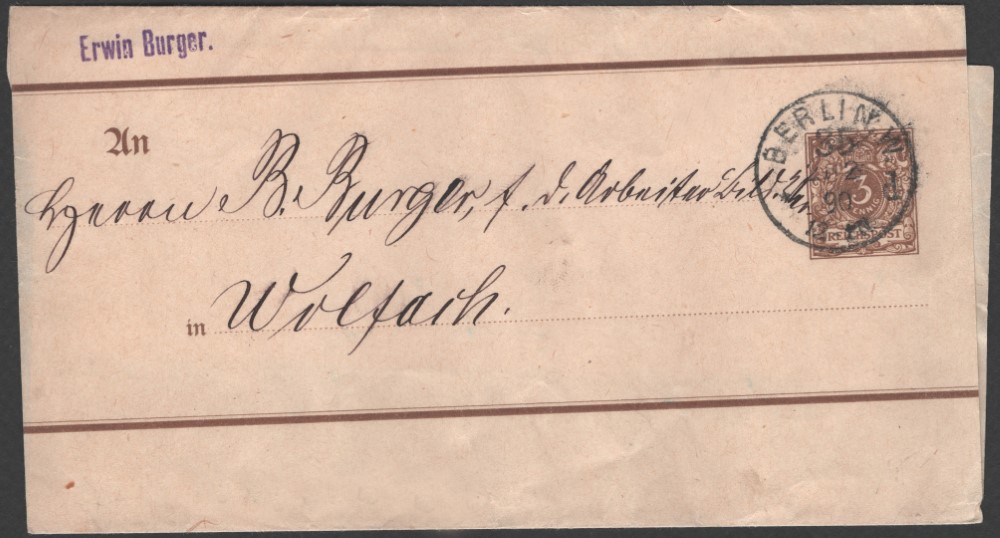 Erwin Burger.
An
Herrn B. Burger, f. d. Arbeiter Bild. Ver.
in Wolfach.
BERLIN N.W.
90
3
PFENNIG
REICHSPOST